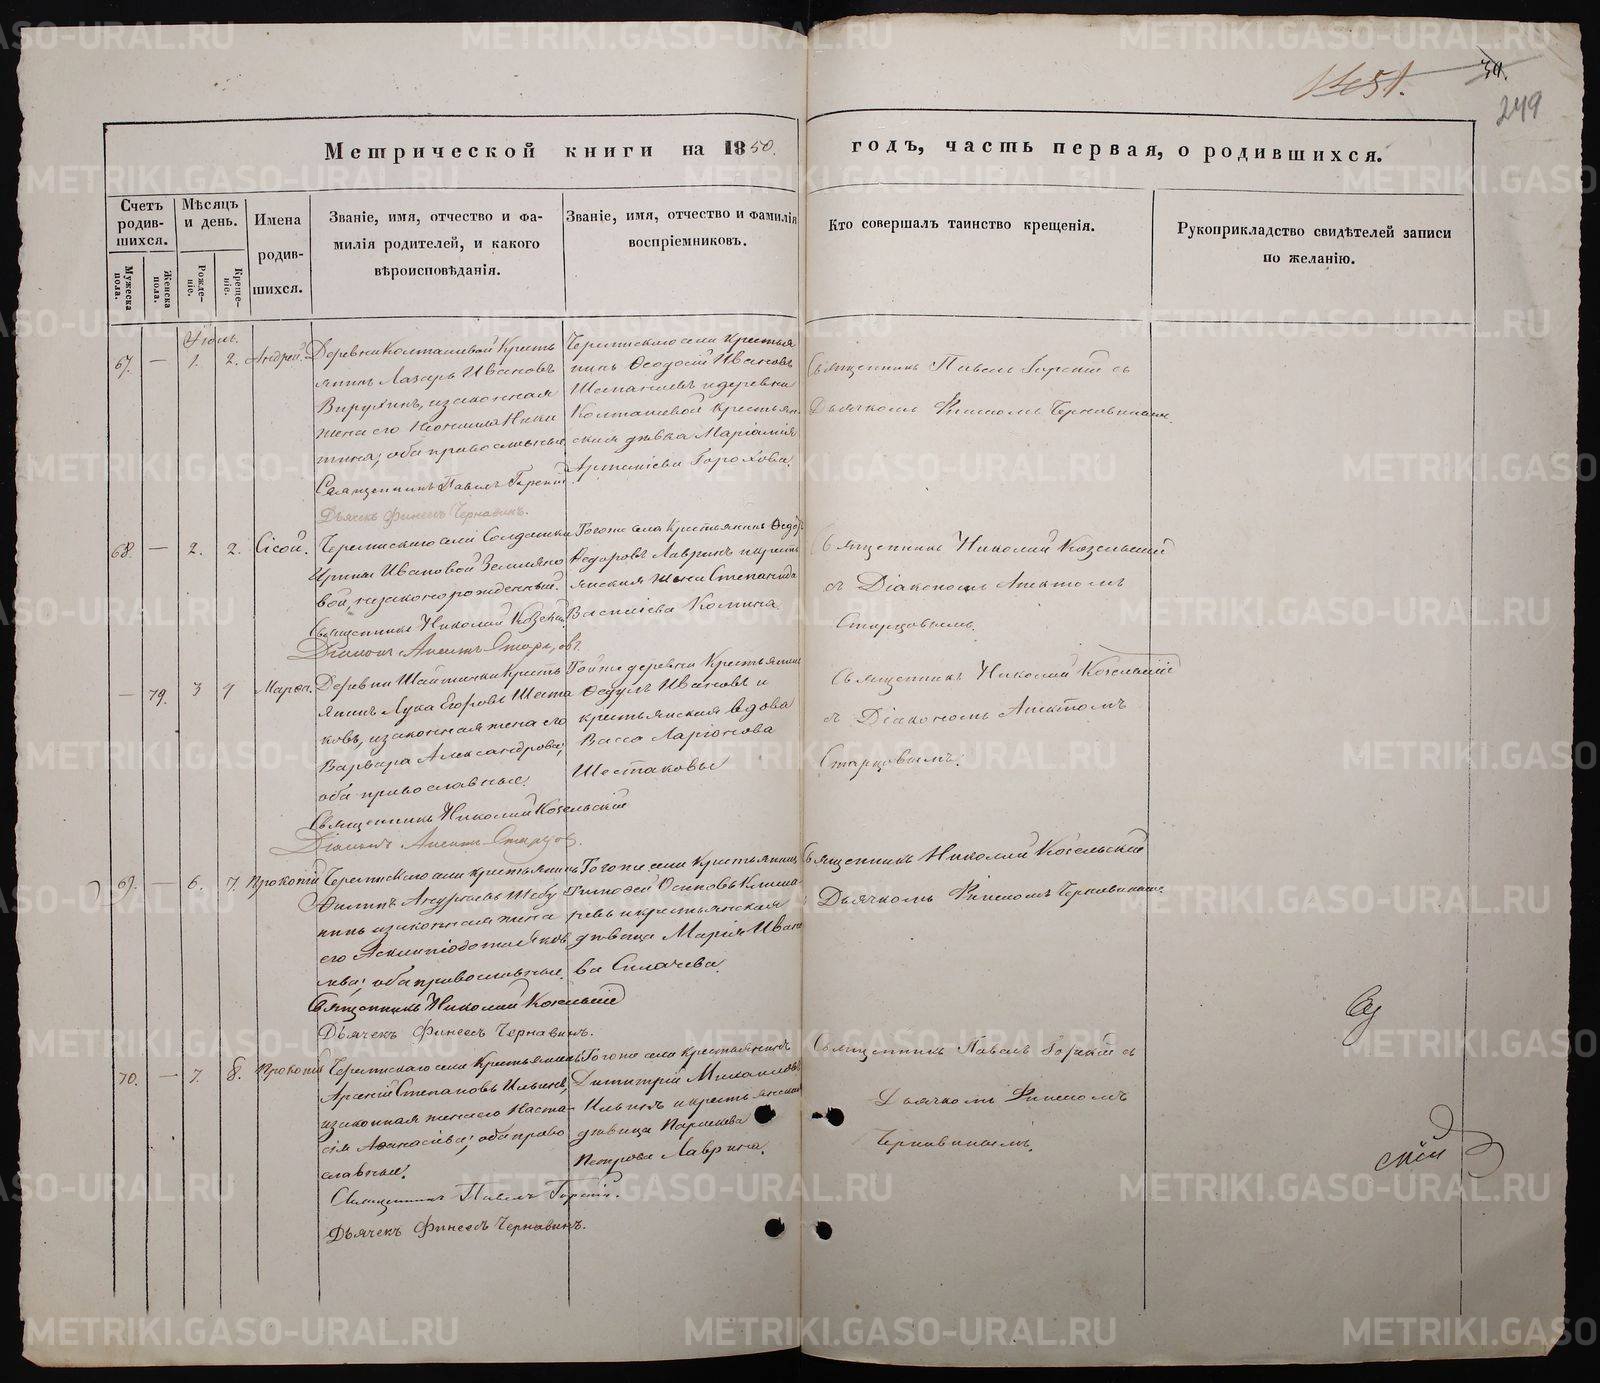 34.
249
Метрической книги на 1850. годъ, часть первая, о родившихся.
Счетъ родив-шихся.
Мужеска пола.
Женска пола.
Мѣсяцъ и день.
Рожде-ніе.
Креще-ніе.
Имена родив-шихся.
Званіе, имя, отчество и фа-
милія родителей, и какого
вѣроисповѣданія.
Званіе, имя, отчество и фамилія
воспріемниковъ.
Кто совершалъ таинство крещенія.
Рукоприкладство свидѣтелей записи
по желанію.
67. — 1. 2. Андрей.
Деревни Колташевой Кресть
янинъ Лазарь Ивановъ
законная
жена его Ники
тина; оба православные
Священникъ Павелъ Горскій
Дьячекъ Финеесъ Чернавинъ.
Черемисскаго села Крестья
нинъ Ѳеодосій Ивановъ
и деревни
Колташевой крестьян
ская дѣвка Маріамія
Артеміева Горохова.
Священникъ Павелъ Горскій съ
Дьячкомъ Финеесомъ Чернавинымъ.
68. — 2. 2. Сісой.
Черемисскаго села Солдатки
Ирины Ивановой Земляно
вой, незаконорожденный.
Священникъ Николай
Діаконъ Старцовъ.
Тогоже села Крестьянинъ
Ѳедоровъ Лавринъ и кресть
янская жена Степанида
Василіева Комина.
Священникъ Николай Козельскій
съ Діакономъ
Старцовымъ.
— 79. 3 4
Деревни Шайтанки Кресть
янинъ Лука Егоровъ Шеста
ковъ, и законная жена его
Варвара Александрова;
оба православные.
Священникъ Николай Козельскій
Діаконъ Старцовъ.
Тойже деревни Крестьянинъ
Ѳедулъ Ивановъ и
крестьянская вдова
Васса Ларіонова
Шестаковы
Священникъ Николай Козельскій
съ Діакономъ
Старцовымъ.
69. — 6. 7. Прокопій
Черемисскаго села крестьянинъ
Филипъ
нинъ и законная жена
его
лева; оба православные.
Священникъ Николай Козельскій
Дьячекъ Финеесъ Чернавинъ.
Тогоже села Крестьянинъ
Тимоѳей Осиповъ
ревъ и крестьянская
дѣвица Марія Ивано
ва Силачева.
Священникъ Николай Козельскій
Дьячкомъ Финеесомъ Чернавинымъ
70. — 7. 8. Прокопій
Черемисскаго села Крестьянинъ
Арсеній Степановъ Ильинъ,
и законная жена его Наста-
сія Аѳанасіева; оба право
славные.
Священникъ Павелъ Горскій.
Дьячекъ Финеесъ Чернавинъ.
Тогоже села крестьянинъ
Димитрій Михаиловъ
Ильинъ и крестьянская
дѣвица
Петрова Лаврина.
Священникъ Павелъ Горскій съ
Дьячкомъ Финеесомъ
Чернавинымъ.